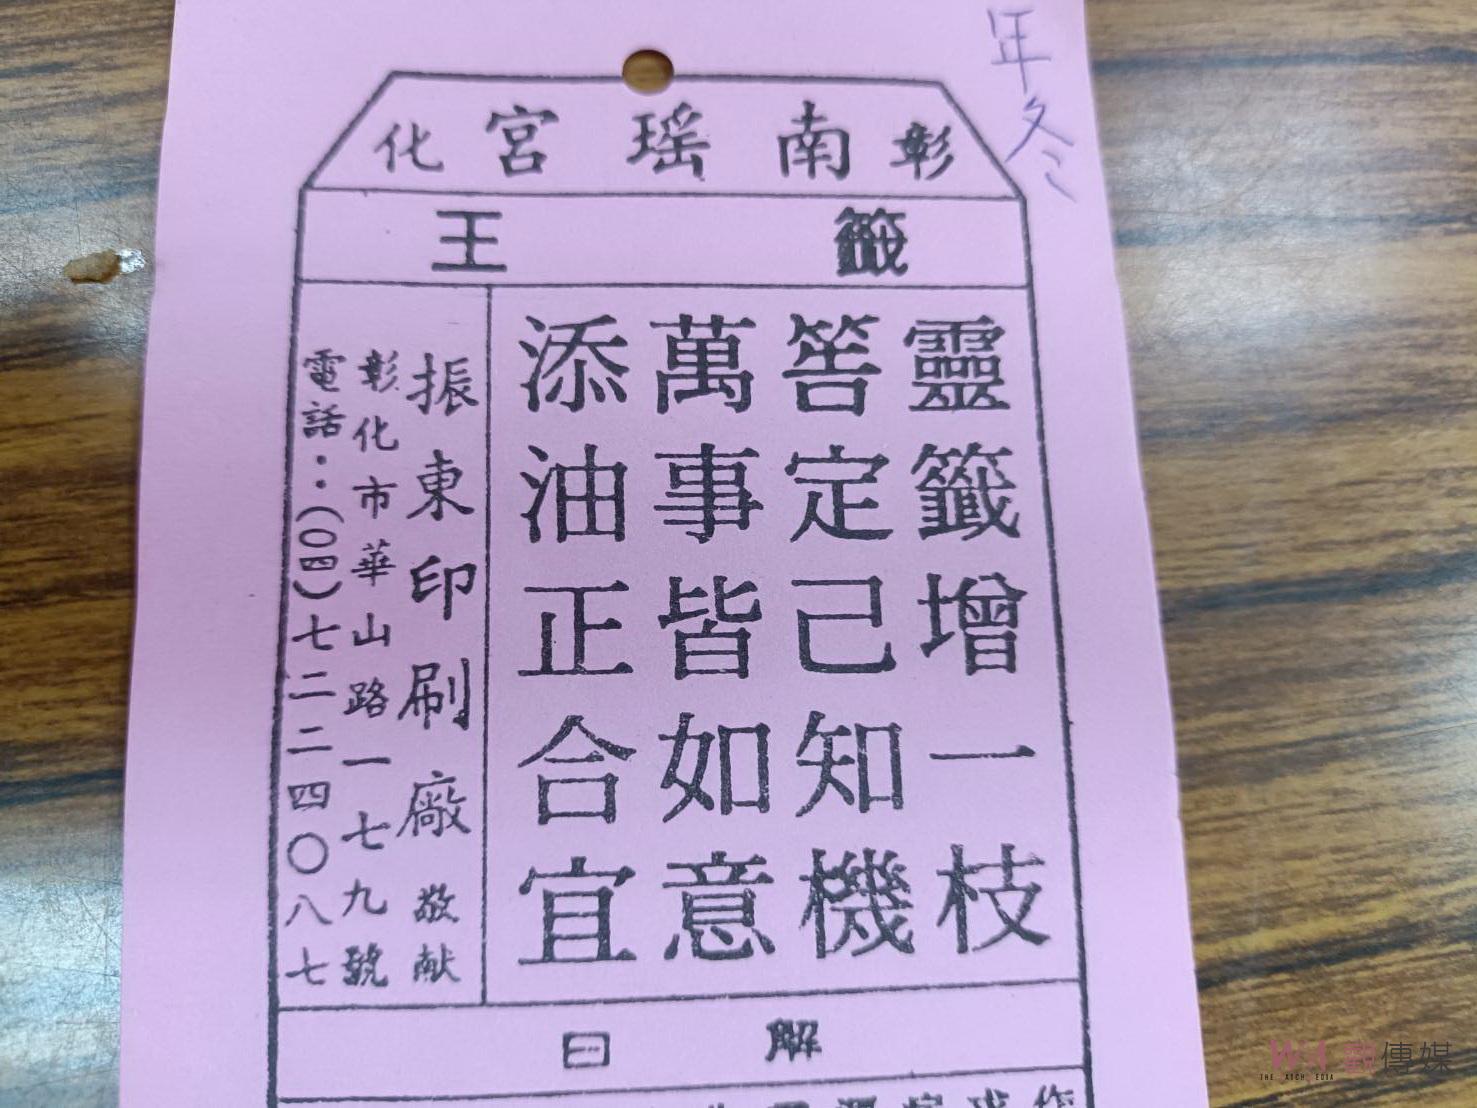 年冬
彰南瑤宮化
籤王
靈籤增一枝
筶定己知機
萬事皆如意
添油正合宜
振東印刷廠敬献
彰化市華山路一七九號
電話：(〇四)七二二四〇八七
解曰
觀傳媒
THE ARCH MEDIA